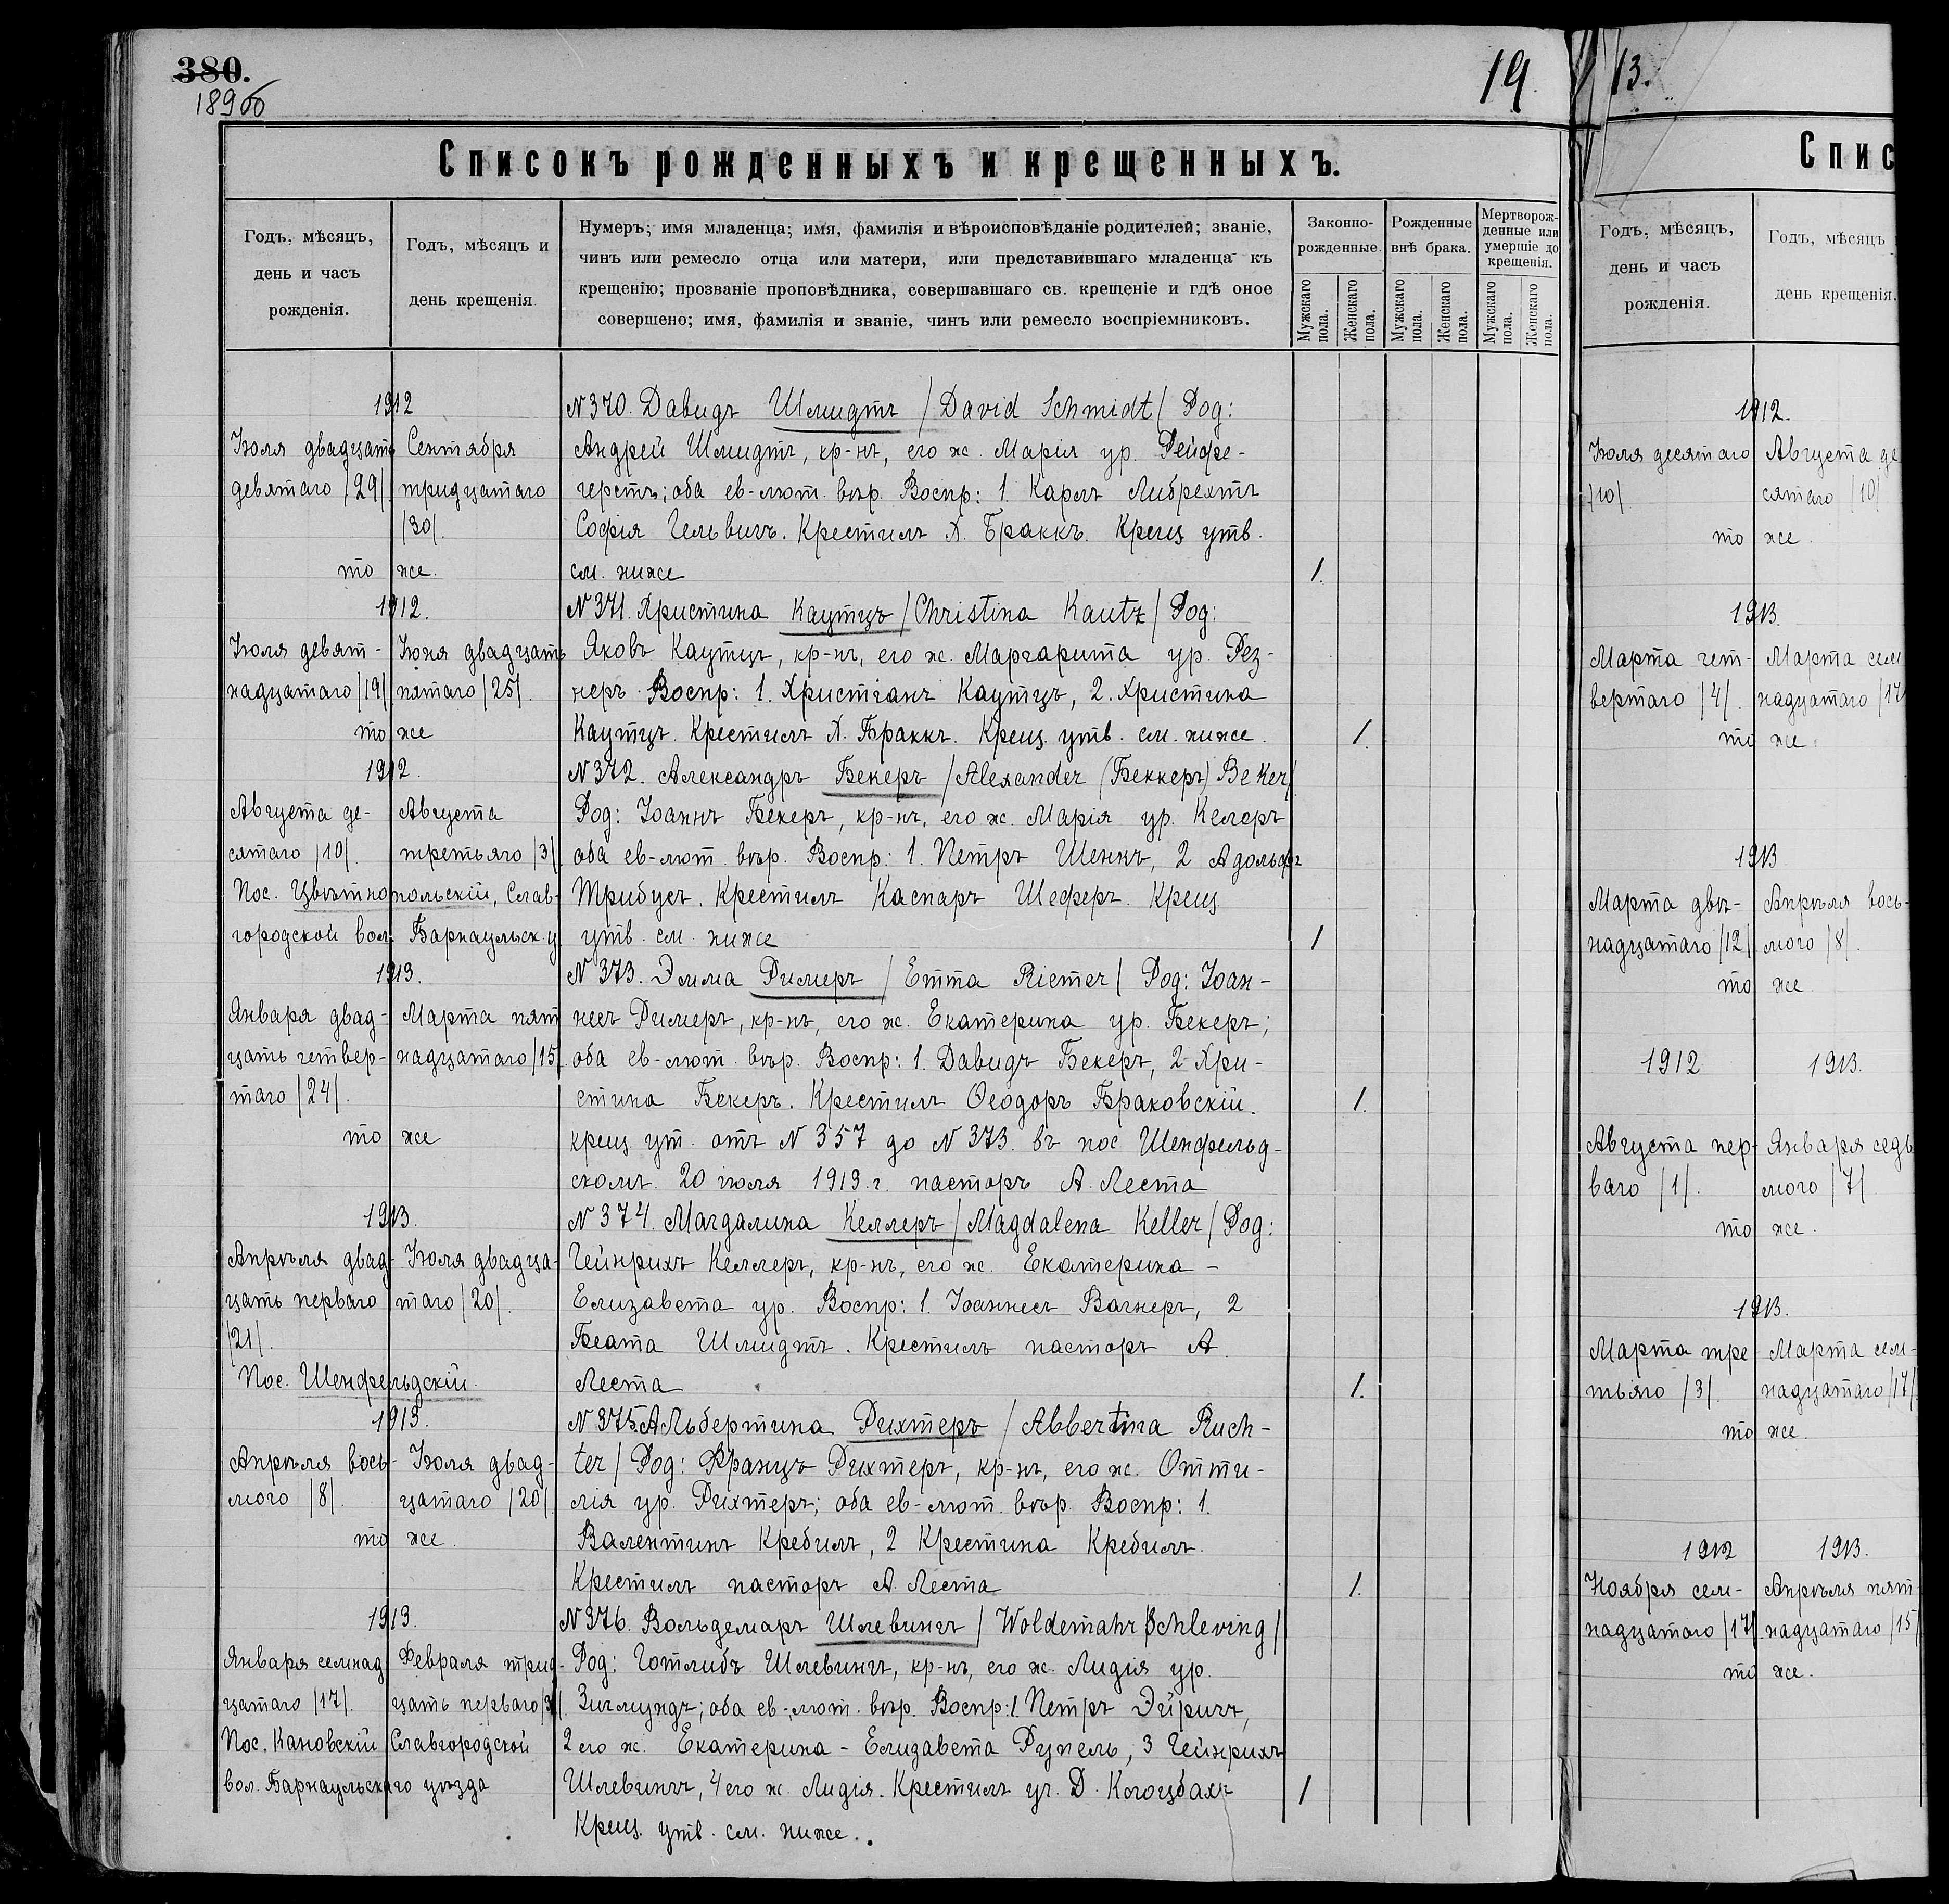 380.
189об
19
13.
Списокъ рожденныхъ и крещенныхъ.
Годъ, мѣсяцъ,
день и часъ
рожденія.
Годъ, мѣсяцъ и
день крещенія.
Нумеръ; имя младенца; имя, фамилія и вѣроисповѣданіе родителей; званіе,
чинъ или ремесло отца или матери, или представившаго младенца къ
крещенію; прозваніе проповѣдника, совершавшаго св. крещеніе и гдѣ оное
совершено; имя, фамилія и званіе, чинъ или ремесло воспріемниковъ.
Законно-
рожденные.
Рожденные
внѣ брака.
Мертворож-
денные или
умершіе до
крещенія.
Мужскаго пола.
Женскаго пола.
Мужскаго пола.
Женскаго пола.
Мужскаго пола.
Женскаго пола.
1912
Іюля двадцать
девятаго /29/
Сентября
тридцатаго
/30/.
то же.
№ 370. Давидъ Шмидтъ / David Schmidt / Род:
Андрей Шмидтъ, кр-нъ, его ж. Марія ур. Рейфе-
герстъ; оба ев-лют. вѣр. Воспр: 1. Карлъ Либрехтъ
Софія Гельвигъ. Крестилъ Х. Браккъ. Крещ утв.
см. ниже
1.
1912.
Іюля девят-
надцатаго /19/
Іюня двадцать
пятаго /25/.
то же
№ 371. Христина Каутцъ / Christina Kautz / Род:
Яковъ Каутцъ, кр-нъ, его ж. Маргарита ур. Рез-
неръ. Воспр: 1. Христіанъ Каутцъ, 2. Христина
Каутцъ. Крестилъ Х. Браккъ. Крещ. утв. см. ниже.
1.
1912.
Августа де-
сятаго /10/.
Августа
третьяго /3/.
Пос. Цвѣтнопольскій, Слав-
городской вол. Барнаульск. у.
№ 372. Александръ Бекеръ / Alexander (Беккеръ) Beker/
Род: Іоаннъ Бекеръ, кр-нъ, его ж. Марія ур. Келеръ
оба ев-лют. вѣр. Воспр: 1. Петръ Шенкъ, 2 Адольфъ
Трибусъ. Крестилъ Каспаръ Шеферъ. Крещ
утв. см. ниже
1
1913.
Января двад-
цать четвер-
таго /24/.
Марта пят
надцатаго /15/.
то же
№ 373. Эмма Римеръ / Emma Riemer / Род: Іоан-
несъ Римеръ, кр-нъ, его ж. Екатерина ур. Бекеръ;
оба ев-лют. вѣр. Воспр: 1. Давидъ Бекеръ, 2 Хри-
стина Бекеръ. Крестилъ Ѳеодоръ Браковскій.
крещ. ут. отъ № 357 до № 373. въ пос Шенфельд-
скомъ. 20 іюля 1913. г. пасторъ А. Леста
1.
1913.
Апрѣля двад-
цать перваго
/21/.
Іюля двадца-
таго /20/.
Пос. Шенфельдскій.
№ 374. Магдалина Келлеръ / Magdalena Keller / Род:
Гейнрихъ Келлеръ, кр-нъ, его ж. Екатерина -
Елизавета ур. Воспр: 1. Іоаннесъ Вагнеръ, 2
Беата Шмидтъ. Крестилъ пасторъ А.
Леста
1.
1913.
Апрѣля вось-
мого /8/.
Іюля двад-
цатаго /20/.
то же.
№ 375. Альбертина Рихтеръ / Abbertina Ruch-
ter / Род: Францъ Рихтеръ, кр-нъ, его ж. Отти-
лія ур. Рихтеръ; оба ев-лют. вѣр. Воспр: 1.
Валентинъ Кребилъ, 2 Крестина Кребилъ.
Крестилъ пасторъ А. Леста
1.
1913.
Января семнад
цатаго /17/.
Февраля трид-
цать перваго
Пос. Кановскій Славгородской
вол. Барнаульскаго уѣзда
№ 376. Вольдемаръ Шлевингъ / Woldemahr Schleving /
Род: Готлибъ Шлевингъ, кр-нъ, его ж. Лидія ур.
Зигмундъ; оба ев-лют. вѣр. Воспр: 1. Петръ Эйригъ,
2 его ж. Екатерина - Елизавета Рупель, 3 Гейнрихъ
Шлевингъ, 4 его ж. Лидія. Крестилъ уч. Д.
Крещ. утв. см. ниже.
1
Спис
Годъ, мѣсяцъ,
день и часъ
рожденія.
Годъ, мѣсяцъ
день крещенія.
1912.
Іюля десятаго
/10/.
Августа де
сятаго /10/
то же.
1913.
Марта чет-
вертаго /4/.
Марта сем
надцатаго /17/
то же.
1913
Марта двѣ-
надцатаго /12/.
Апрѣля вось-
мого /8/.
то же.
1912
1913.
Августа пер-
ваго /1/.
Января седь
мого /7/.
то же.
1913.
Марта тре
тьяго /3/.
Марта сем-
надцатаго /17/.
то же.
1912
1913.
Ноября сем-
надцатаго /17/.
Апрѣля пят-
надцатаго /15/
то же.